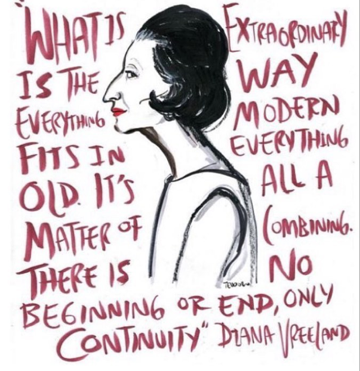 "WHAT IS EXTRAORDINARY
IS THE WAY
EVERYTHING MODERN
FITS IN EVERYTHING
OLD. IT'S ALL A
MATTER OF COMBINING.
THERE IS NO
BEGINNING OR END, ONLY
CONTINUITY" DIANA VREELAND